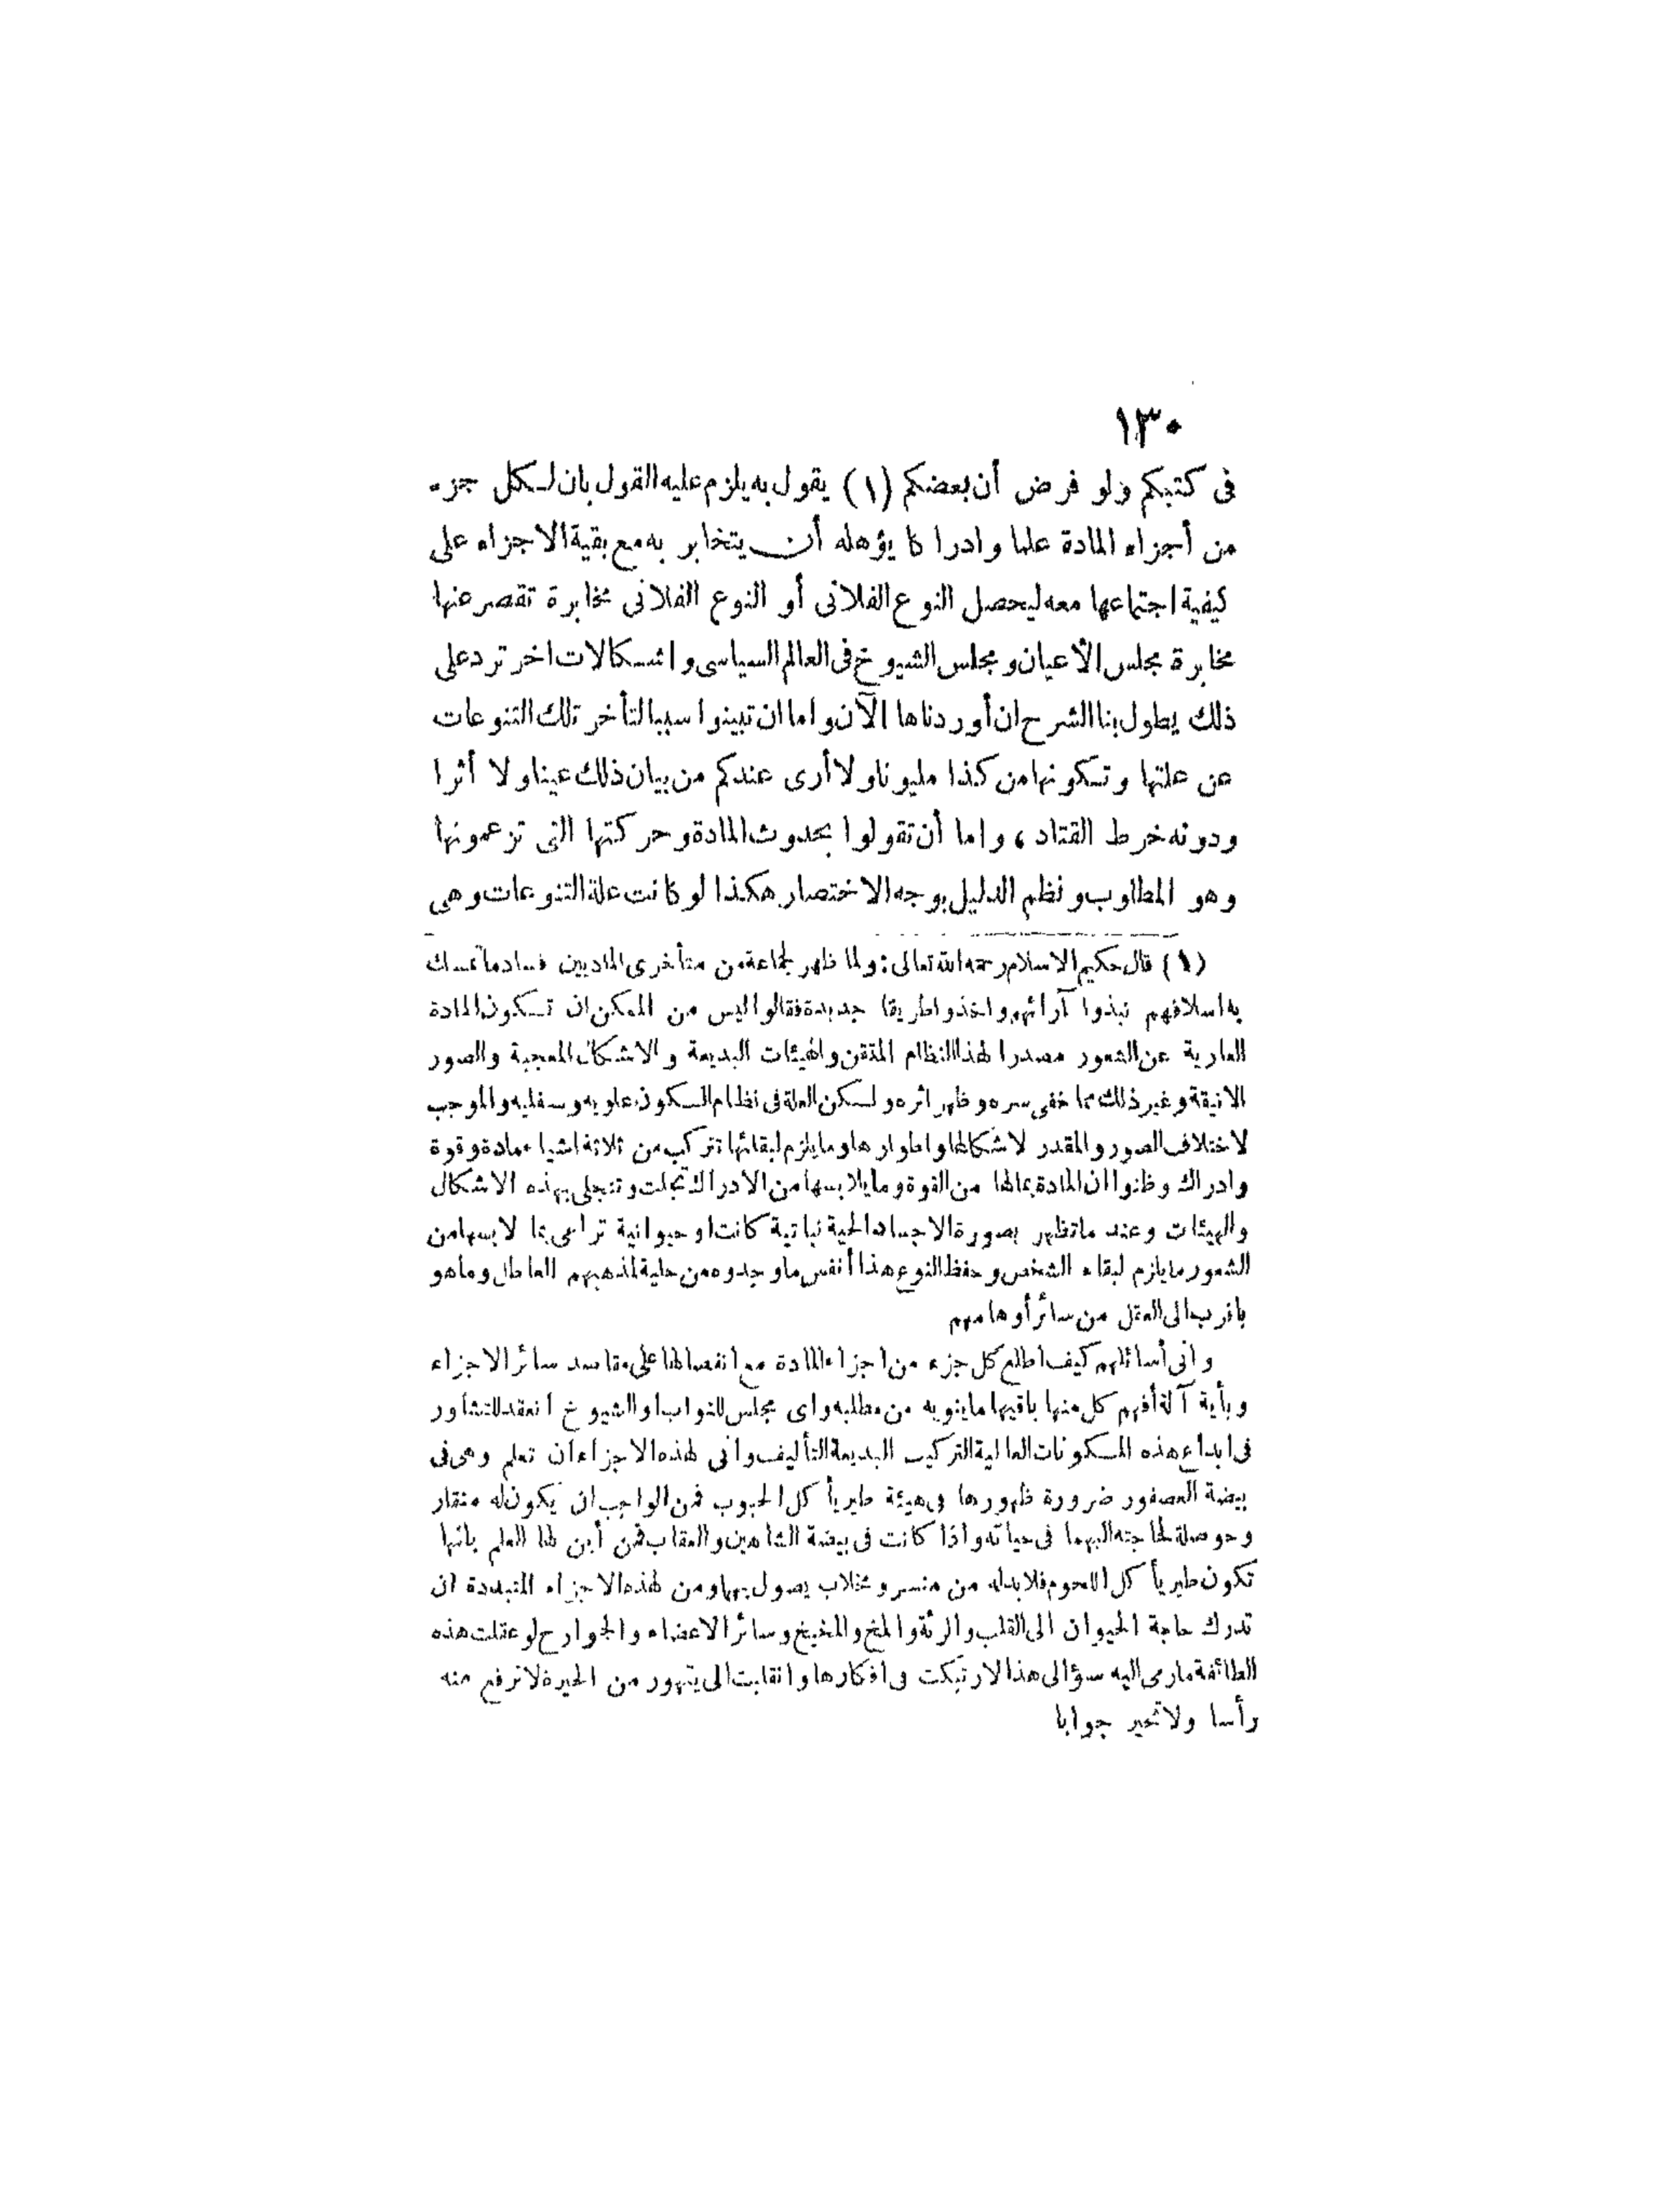 ١٣٠
فى كتبكم ولو فرض أن بعضكم (١) يقول به يلزم عليه القول بان لكل جزء
من أجزاء المادة علما وادرا كا يؤهله أن يتخابر به مع بقية الاجزاء على
كيفية اجتماعها معه ليحصل النوع الفلانى أو النوع الفلانى مخابرة تقصر عنها
مخابرة مجلس الأعيان ومجلس الشيوخ فى العالم السياسى واشكالات اخر ترد على
ذلك يطول بنا الشرح ان أوردناها الآن واما ان تبينوا سببا لتأخر تلك التنوعات
عن علتها وتكونها من كذا مليونا ولا أرى عندكم من بيان ذلك عينا ولا أثرا
ودونه خرط القتاد ، واما أن تقولوا بحدوث المادة وحركتها التى تزعمونها
وهو المطلوب ونظم الدليل بوجه الاختصار هكذا لو كانت علة التنوعات وهى
(١) قال حكيم الاسلام رحمه الله تعالى : ولما ظهر لجماعة من متأخرى الماديين فساد ما تمسك
به اسلافهم نبذوا آرائهم واخذوا طريقا جديدة فقالوا ليس من الممكن ان تكون المادة
العارية عن الشعور مصدرا لهذا النظام المتقن والهيئات البديعة والاشكال المعجبة والصور
الانيقة وغير ذلك مما خفى سره وظهر اثره ولكن العلة فى نظام الكون علويه وسفليه والموجب
لاختلاف الصور والمقدر لاشكالها واطوارها وما يلزم لبقائها تتركب من ثلاثة اشياء مادة وقوة
وادراك وظنوا ان المادة بمالها من القوة وما يلابسها من الادراك تجلت وتتجلى بهذه الاشكال
والهيئات وعند ما تظهر بصورة الاجساد الحية نباتية كانت او حيوانية تراعى بما لابسها من
الشعور ما يلزم لبقاء الشخص وحفظ النوع هذا أنفس ما وجدوه من حلية لمذهبهم العاطل وما هو
باقرب الى العقل من سائر أوهامهم
وانى أسائلهم كيف اطلع كل جزء من اجزاء المادة مع انفصالها على مقاصد سائر الاجزاء
وبأية آلة أفهم كل منها باقيها ما ينويه من مطلبه واى مجلس للنواب او الشيوخ انعقد للتشاور
فى ابداع هذه المكونات العالية التركيب البديعة التأليف وانى لهذه الاجزاء ان تعلم وهى فى
بيضة العصفور ضرورة ظهورها فى هيئة طير يأ كل الحبوب فمن الواجب ان يكون له منقار
وحوصلة لحاجته اليهما فى حياته واذا كانت فى بيضة الشاهين والعقاب فمن أين لها العلم بانها
تكون طير يأ كل اللحوم فلا بد له من منسر ومخلاب يصول بهما ومن لهذه الاجزاء المتبددة ان
تدرك حاجة الحيوان الى القلب والرئة والمخ والمخيخ وسائر الاعضاء والجوارح لو عقلت هذه
الطائفة ما رمى اليه سؤالى هذا لارتبكت فى افكارها وانقلبت الى يتهور من الحيرة لا ترفع منه
رأسا ولا تحير جوابا